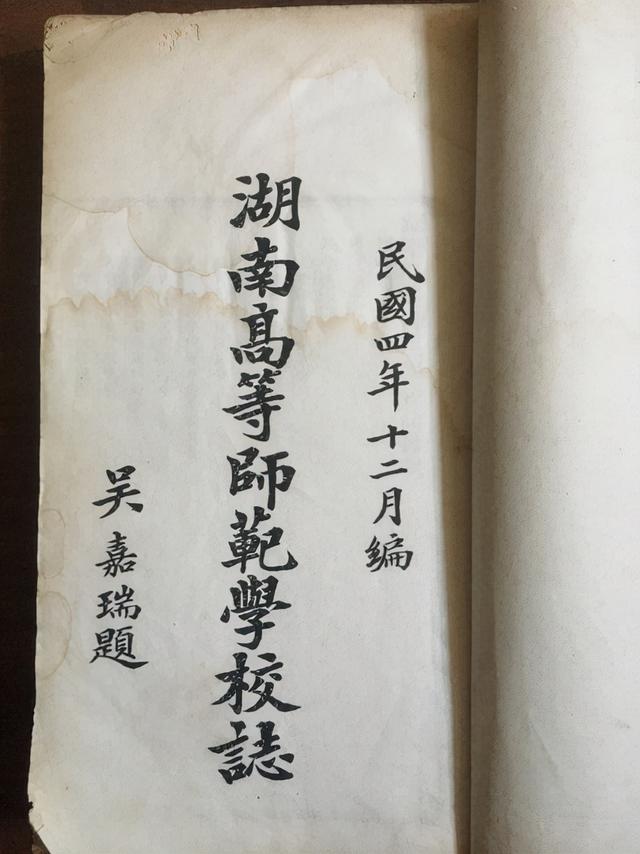 民國四年十二月編
湖南高等師範學校誌
吴嘉瑞題